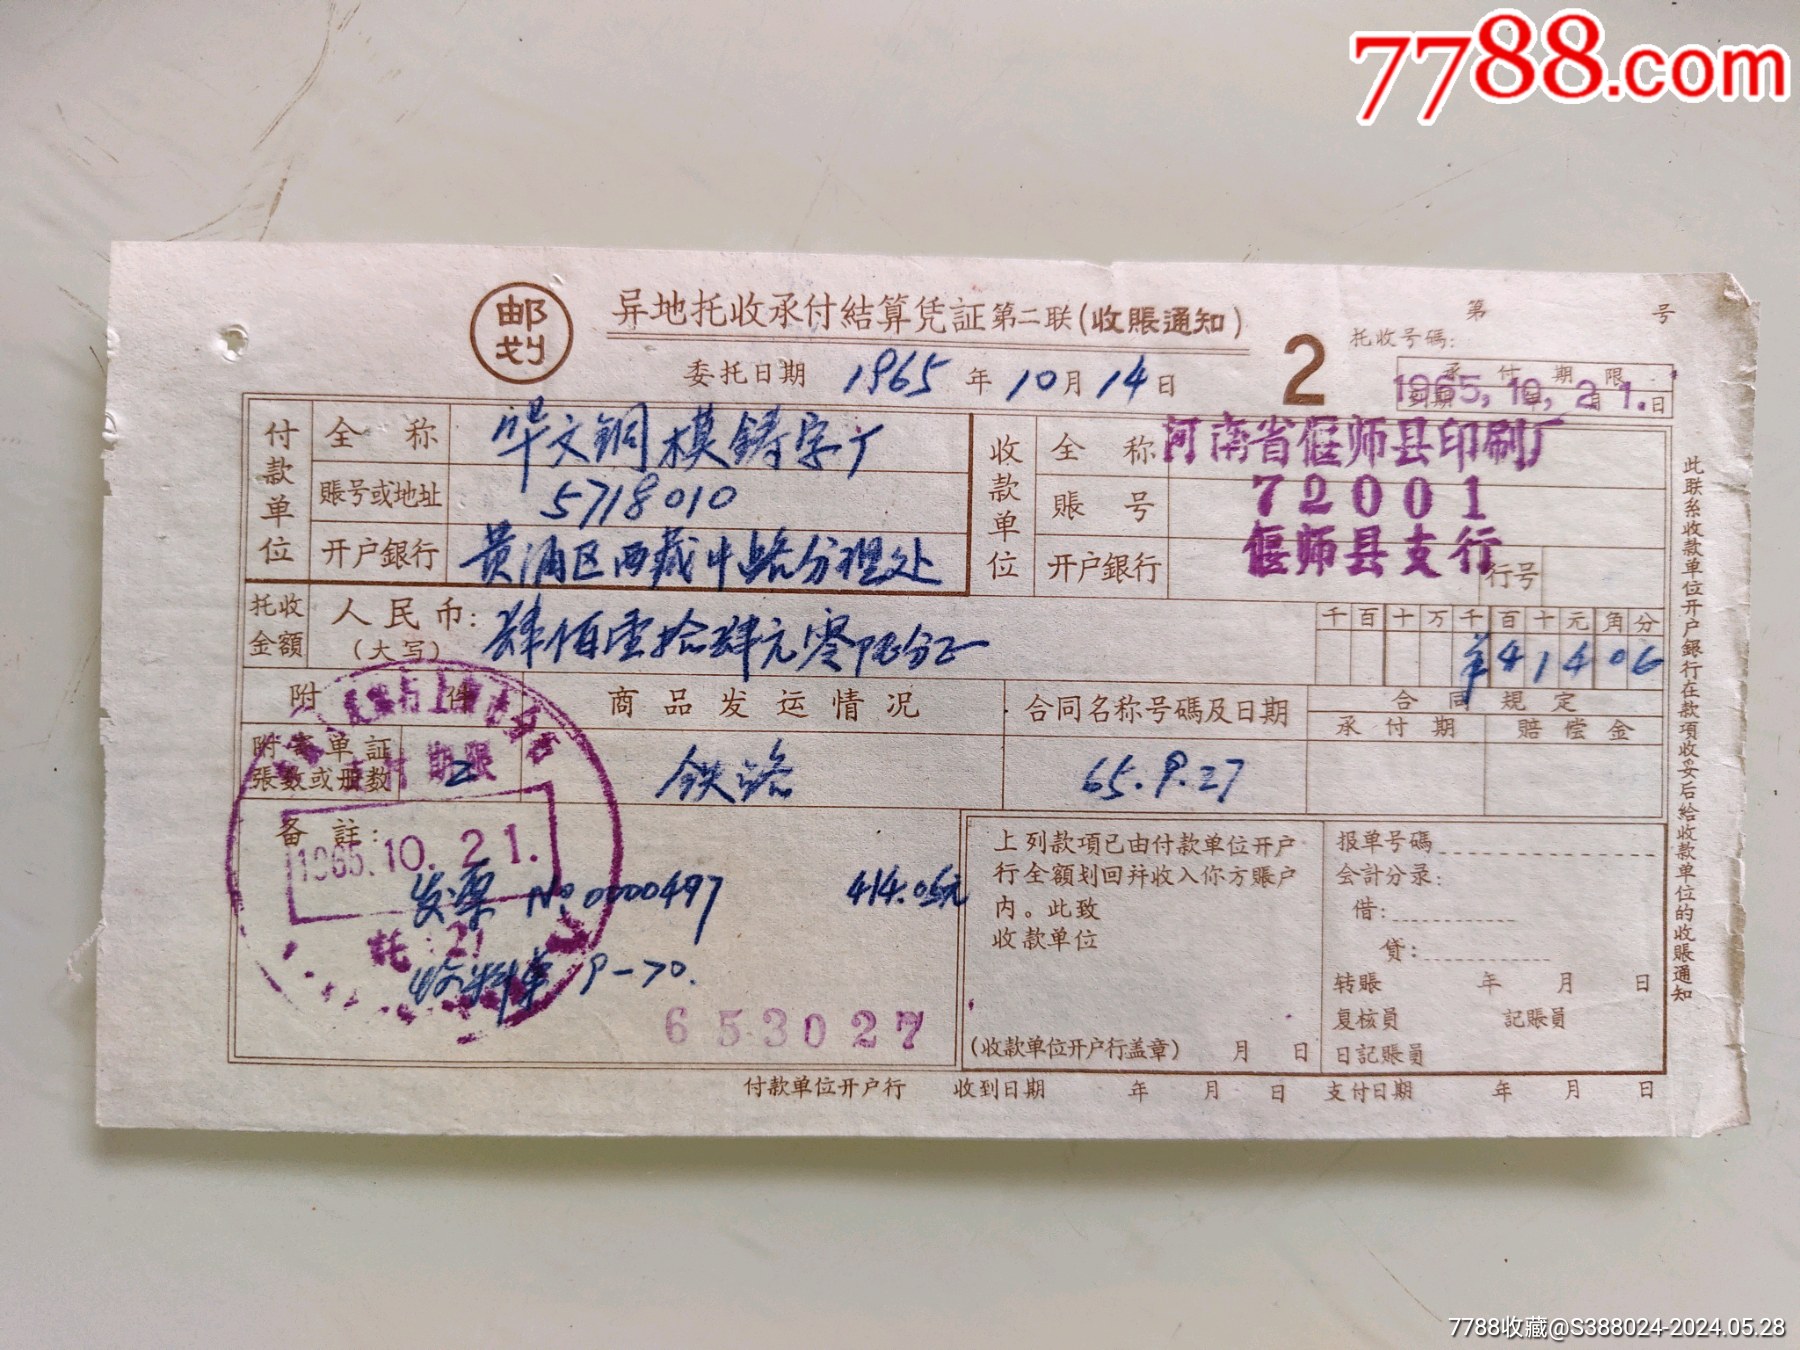 7788.com
邮划
异地托收承付結算凭証第二联(收賬通知)
2
第 号
托收号碼:
委托日期 1965 年 10 月 14 日
承付期限
到期 月 日
1965.10.21.
付款单位
全称 华文铜模鑄字厂
賬号或地址 5718010
开户銀行 黄浦区西藏中路分理处
收款单位
全称 河南省偃师县印刷厂
賬号 72001
开户銀行 偃师县支行 行号
托收金額
人民币:(大写) 肆佰壹拾肆元零
千百十万千百十元角分
¥41406
附件 商品发运情况 合同名称号碼及日期 合同規定
承付期 賠偿金
附寄单証張数或册数 2 铁路 65.9.27
备註:
付期限
1965.10.21.
託 21
发票 No 0000497 414.05元
收料单 9-70.
653027
上列款項已由付款单位开户
行全額划回幷收入你方賬户
内。此致
收款单位
(收款单位开户行盖章) 月 日
报单号碼
会計分录:
借:
貸:
转賬 年 月 日
复核員 記賬員
日記賬員
付款单位开户行 收到日期 年 月 日 支付日期 年 月 日
此联系收款单位开户銀行在款項收妥后給收款单位的收賬通知
7788收藏@S388024-2024.05.28